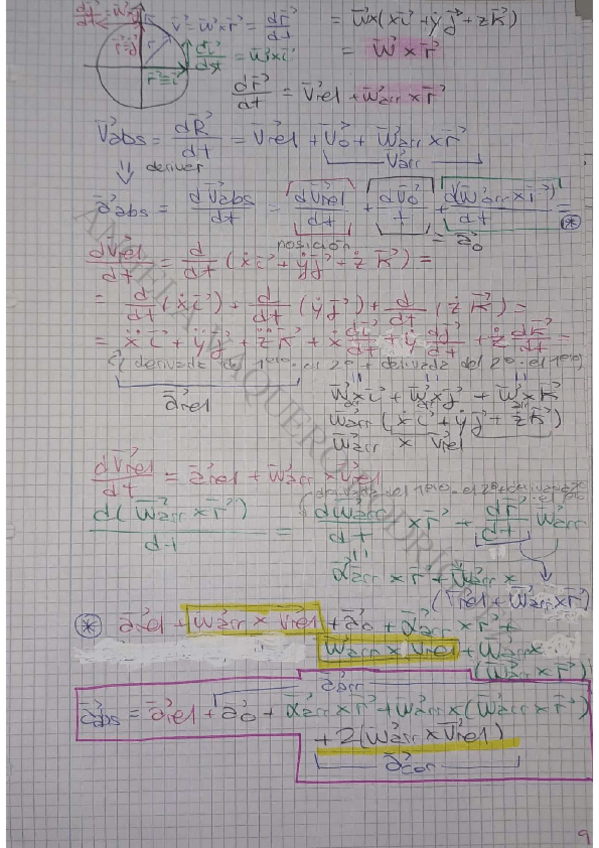 di⃗/dt = w⃗×j⃗ k⃗ v⃗ = w⃗×r⃗ = dr⃗/dt = w⃗×(xi⃗ + yj⃗ + zk⃗)
r⃗≡j⃗ r⃗ di⃗/dt = w⃗×i⃗ = w⃗×r⃗
r⃗≡i⃗
dr⃗/dt = v⃗rel + w⃗arr×r⃗
v⃗abs = dR⃗/dt = v⃗rel + v⃗o + w⃗arr×r⃗
v⃗arr
⇓ derivar
a⃗abs = dv⃗abs/dt = dv⃗rel/dt + dv⃗o/t + d(w⃗arr×r⃗)/dt = *
posición = a⃗o
dv⃗rel/dt = d/dt (ẋi⃗ + ẏj⃗ + żk⃗) =
= d/dt (ẋi⃗) + d/dt (ẏj⃗) + d/dt (żk⃗) =
= ẍi⃗ + ÿj⃗ + z̈k⃗ + ẋ di⃗/dt + ẏ dj⃗/dt + ż dk⃗/dt =
derivada del 1º · el 2º + derivada del 2º · el 1º
a⃗rel
w⃗×i⃗ + w⃗×j⃗ + w⃗×k⃗
w⃗arr (ẋi⃗ + ẏj⃗ + żk⃗)
w⃗arr × v⃗rel
dv⃗rel/dt = a⃗rel + w⃗arr×v⃗rel
d(w⃗arr×r⃗)/dt = dw⃗arr/dt ×r⃗ + dr⃗/dt w⃗arr
α⃗arr × r⃗ + w⃗arr×
(v⃗rel + w⃗arr×r⃗)
* a⃗rel + w⃗arr×v⃗rel + a⃗o + α⃗arr×r⃗ +
w⃗arr×v⃗rel + w⃗arr×
(w⃗arr×r⃗)
a⃗arr
a⃗abs = a⃗rel + a⃗o + α⃗arr×r⃗ + w⃗arr×(w⃗arr×r⃗)
+ 2(w⃗arr×v⃗rel)
a⃗cor
9